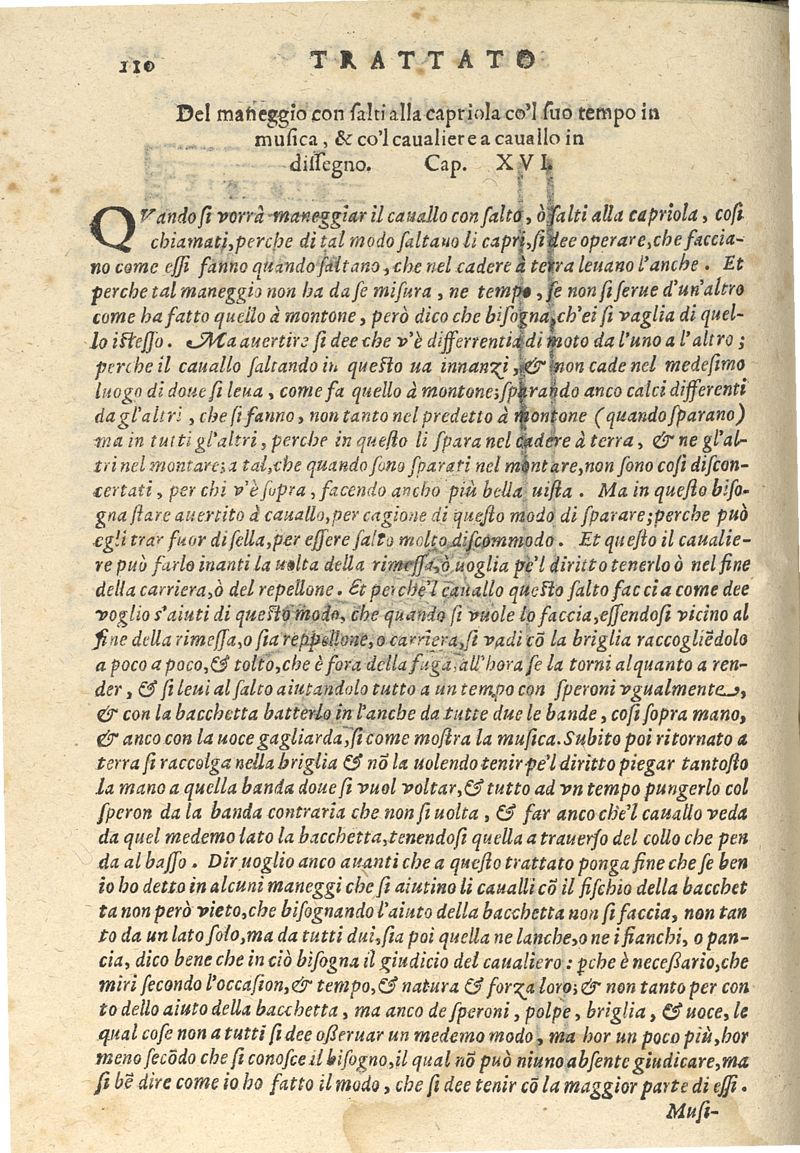 110
TRATTATO
Del maneggio con salti alla capriola co'l suo tempo in
musica, & co'l caualiere a cauallo in
dissegno. Cap. XVI.
QVando si vorrà maneggiar il cauallo con salto, ò salti alla capriola, così
chiamati, perche di tal modo saltano li capri, si dee operare, che faccia-
no come essi fanno quando saltano, che nel cadere à terra leuano l'anche. Et
perche tal maneggio non ha da se misura, ne tempo, se non si serue d'un'altro
come ha fatto quello à montone, però dico che bisogna, ch'ei si vaglia di quel-
lo istesso. Ma auertire si dee che v'è differrentia di moto da l'uno a l'altro;
perche il cauallo saltando in questo ua innanzi, & non cade nel medesimo
luogo di doue si leua, come fa quello à montone; sparando anco calci differenti
da gl'altri, che si fanno, non tanto nel predetto à montone (quando sparano)
ma in tutti gl'altri, perche in questo li spara nel cadere à terra, & ne gl'al-
tri nel montare; a tal, che quando sono sparati nel montare, non sono così discon-
certati, per chi v'è sopra, facendo ancho più bella uista. Ma in questo biso-
gna stare auertito à cauallo, per cagione di questo modo di sparare; perche può
egli trar fuor di sella, per essere salto molto discommodo. Et questo il caualie-
re può farlo inanti la uolta della rimessa, ò uoglia pe'l diritto tenerlo ò nel fine
della carriera, ò del repellone. Et perche'l cauallo questo salto faccia come dee
voglio s'aiuti di questo modo, che quando si vuole lo faccia, essendosi vicino al
fine della rimessa, o sia reppellone, o carriera, si vadi cō la briglia raccogliēdolo
a poco a poco, & tolto, che è fora della fuga, all'hora se la torni alquanto a ren-
der, & si leui al salto aiutandolo tutto a un tempo con speroni vgualmente,
& con la bacchetta batterlo in l'anche da tutte due le bande, così sopra mano,
& anco con la uoce gagliarda, si come mostra la musica. Subito poi ritornato a
terra si raccolga nella briglia & nō la uolendo tenir pe'l diritto piegar tantosto
la mano a quella banda doue si vuol voltar, & tutto ad vn tempo pungerlo col
speron da la banda contraria che non si uolta, & far anco che'l cauallo veda
da quel medemo lato la bacchetta, tenendosi quella a trauerso del collo che pen
da al basso. Dir uoglio anco auanti che a questo trattato ponga fine che se ben
io ho detto in alcuni maneggi che si aiutino li caualli cō il fischio della bacchet
ta non però vieto, che bisognando l'aiuto della bacchetta non si faccia, non tan
to da un lato solo, ma da tutti dui, sia poi quella ne lanche, o ne i fianchi, o pan-
cia, dico bene che in ciò bisogna il giudicio del caualiero: ꝑche è necessario, che
miri secondo l'occasion, & tempo, & natura & forza loro; & non tanto per con
to dello aiuto della bacchetta, ma anco de speroni, polpe, briglia, & uoce, le
qual cose non a tutti si dee osseruar un medemo modo, ma hor un poco più, hor
meno secōdo che si conosce il bisogno, il qual nō può niuno absente giudicare, ma
si bē dire come io ho fatto il modo, che si dee tenir cō la maggior parte di essi.
Musi-